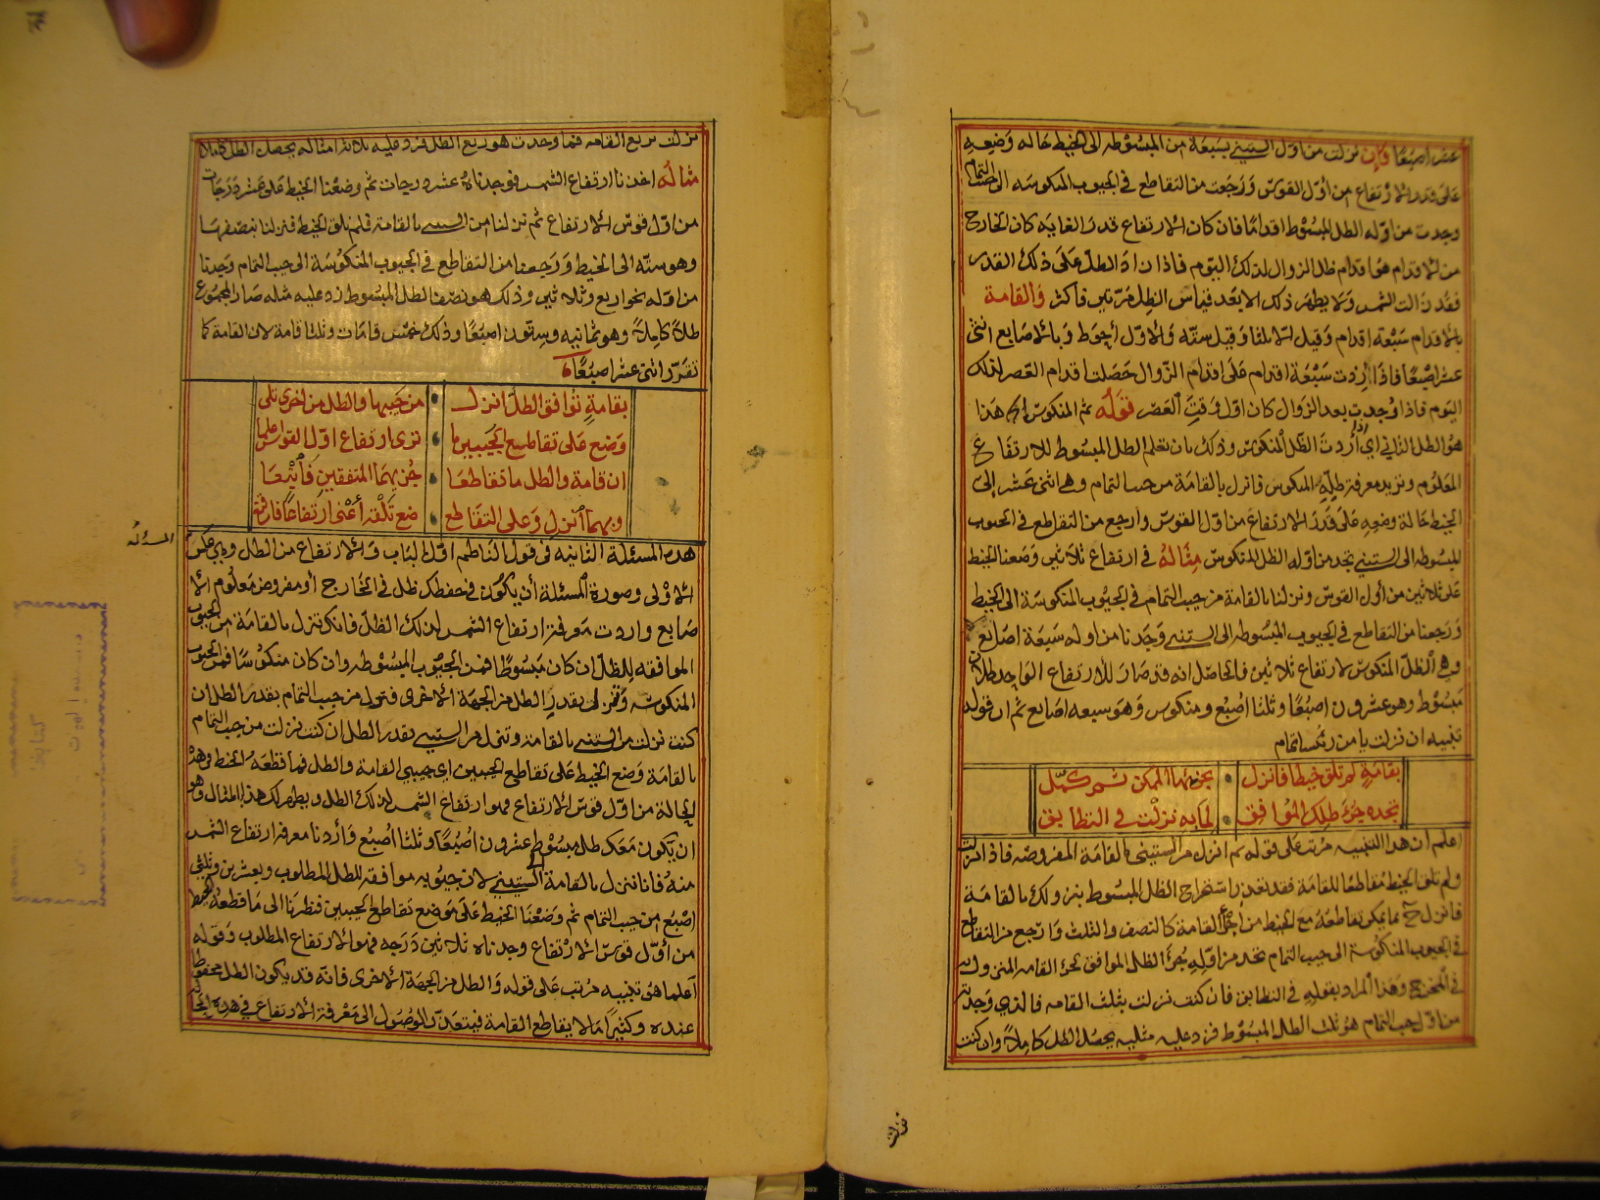 عشر اصبعًا وَإن نزلت من اول الستيني بسبعة من المبسوطه الى الخيط حاله وضعه
على قدر الارتفاع من اول القوس وَرجعت من التقاطع في الجيوب المنكوسه الى جيب التمام
وجدت من اوله الظل المبسوط اقدامًا فان كان الارتفاع قدر الغايه كان الخارج
من الاقدام هو اقدام ظل الزوال لذلك اليوم فاذا زاد الظل على ذلك القدر
فقد زالت الشمس ولا يظهر ذلك الا بعد قياس الظل مرتين فاكثر وَالقامة
بالاقدام سَبْعة اقدام وَقيل الا ثلثا وَقيل ستّه وَالاوّل أحوط وَبالاصابع اثنى
عشر اصبعًا فاذا زدت سَبْعة اقدام على اقدام الزّوال حصَلت اقدام العصر لذلك
اليوم فاذا وُجدت بعد الزوال كان اوّل وَقت العَصر قوله ثم المنكوس الخ هَذا
هُو الظل الثاني اي اذا أردتَ الظّل المنكوس وذلك بان تعلم الظل المبسوط للارتفاع
المعلوم وتريد معرفة ظلِّهِ المنكوس فانزل بالقامة من جيب التمام وهي اثنى عشر إلى
الخيط حالة وضعه على قدر الارتفاع من اوّل القوس وارجع من التقاطع في الجيوب
المبسوطه الى الستيني تجد من اوله الظل المنكوس مثاله في ارتفاع ثلاثين وَضعنا الخيط
على ثلاثين من أول القوس ونزلنا بالقامة من جيب التمام في الجيوب المنكوسة الى الخيط
وَرَجعنا من التقاطع في الجيوب المبسوطه الى الستيني وَجدنا من اوله سبعة اصابع
وهي الظلّ المنكوس لارتفاع ثلاثين فالحاصل انه قد صَارَ للارتفاع الواحد ظلان
مَبسُوط وهو عشرون اصبعًا وثلثا اصبع ومنكوس وَهو سبعه اصابع ثم ان قوله
تنبيه ان نزلت يا من رتكب التمام
بقامَةٍ لم تلق خيطا فانزل • بجزئها الممكن ثم كمّل
تجده جزءَ ظلك الموافِق • لما به نزلت في التطابق
اعلم ان هذا التنبيه مرتب على قوله ثم انزل من الستيني بالقامَة المفروضَه فاذا نزلت
ولم تلق الخيط مُقاطعًا للقامَة فقد تعذر استخراج الظل المبسُوط بنزولك بالقامَة
فانزل ح بما يمكن تقاطعَهُ مع الخيط من اجزاء القامَة كالنصف والثلث وارجع من التقاطع
في الجيوب المنكوسَة الى جيب التمام تجد من اوّلِهِ جُزءَ الظل الموافق لجزءِ القامَه المنزول به
في المخرج وَهَذا المراد بقولهِ في التطابق فان كنت نزلت بثلث القامه فالذي وَجدته
من اوّل جيب التمام هو ثلث الظل المبسوط فزد عليه مثليه يحصُل الظل كاملًا وان كنت
نزلت
نزلت بربع القامه فما وجدت هو ربع الظل فزد عليه ثلاثة امثاله يحصل الظل كاملا
مثاله اخذنا ارتفاع الشمس فوجدناهُ عشر درجات ثم وضعْنا الخيط على عشر دَرَجَات
من اوّل قوس الارتفاع ثم نزلنا من الستيني بالقامة فلم نلق الخيط فنزلنا بنصفها
وهو ستّه الى الخيط وَرجعنا من التقاطع في الجيوب المنكوسَة الى جيب التمام وَجدنا
من اوله نحو اربع وثلاثين وذلك هو نصف الظل المبسوط زد عليه مثله صَار المجموع
ظلا كاملا وهو ثمانيه وستون اصبَعًا وذلك خمس قامَات وثلثا قامة لان القامة كما
تقرّر اثنى عشر اصبعًا
بقامةٍ توافق الظل انزل • من جيبها والظل من اخرى تلى
وَضع على تقاطع الجيبين ما • ترى ارتفاع اول القوس اعلما
ان قامة والظل ما تقاطعَا • جُزئيهما المتفقين فاتبعَا
وبهما انزل وعلى التقاطع • ضع تَلْقه أعْنى ارتفاعًا فارفع
المسئله
هذه المسئلة الثانيه في قول الناظم اوّل الباب وَالارتفاع من الظل وهي عكس
الاوْلى وصورة المسئلة أن يكون في حفظك ظل في الخارج او مفروض معلوم الا
صابع واردت معرفة ارتفاع الشمس لذلك الظلّ فانك تنزل بالقامَة من الجيوب
الموافقه للظل ان كان مبسُوطًا فمن الجيوب المبسُوطه وان كان منكوسًا فمن الجيوب
المنكوسَه وَتنزل بقدرِ الظل من الجهَة الاخرى فتنزل من جيب التمام بقدر الظل ان
كنت نزلت من الستيني بالقامة وتنزل من الستيني بقدر الظل ان كنت نزلت من جيب التمام
بالقامَة وَضع الخيط على تقاطع الجيبين اي جيبي القامة والظل فما قطعَهُ الخيط وهذه
الحالة من اوّل قوس الارتفاع فهو ارتفاع الشمس لذلك الظل ويظهر لك هذا بالمثال وَهو
ان يكون معَك ظل مبسوط عشرون اصبُعًا وثلثا اصبُع وَأردنا معرفة ارتفاع الشمس
منهُ فاننا ننزل بالقامة من الستيني لان جيُوبه موافقه للظل المطلوب وبعشرين وثلثي
اصبَع من جيب التمام ثم وَضعْنا الخيط على مَوضع تقاطع الجيبين فنظرنا الى مَا قطعَهُ الخيط
من أوّل قوس الارتفاع وجدناه ثلاثين دَرجه فهو الارتفاع المطلوب وَقوله
اعلما هو تنبيه مرتب على قوله وَالظل من الجهَة الاخرى فانّه قد يكون الظل محفوظًا
عنده وكثيرًا مَا لا يقاطع القامة فيتعذّر الوُصُول الى مَعْرفة الارتفاع في هذه الحالة